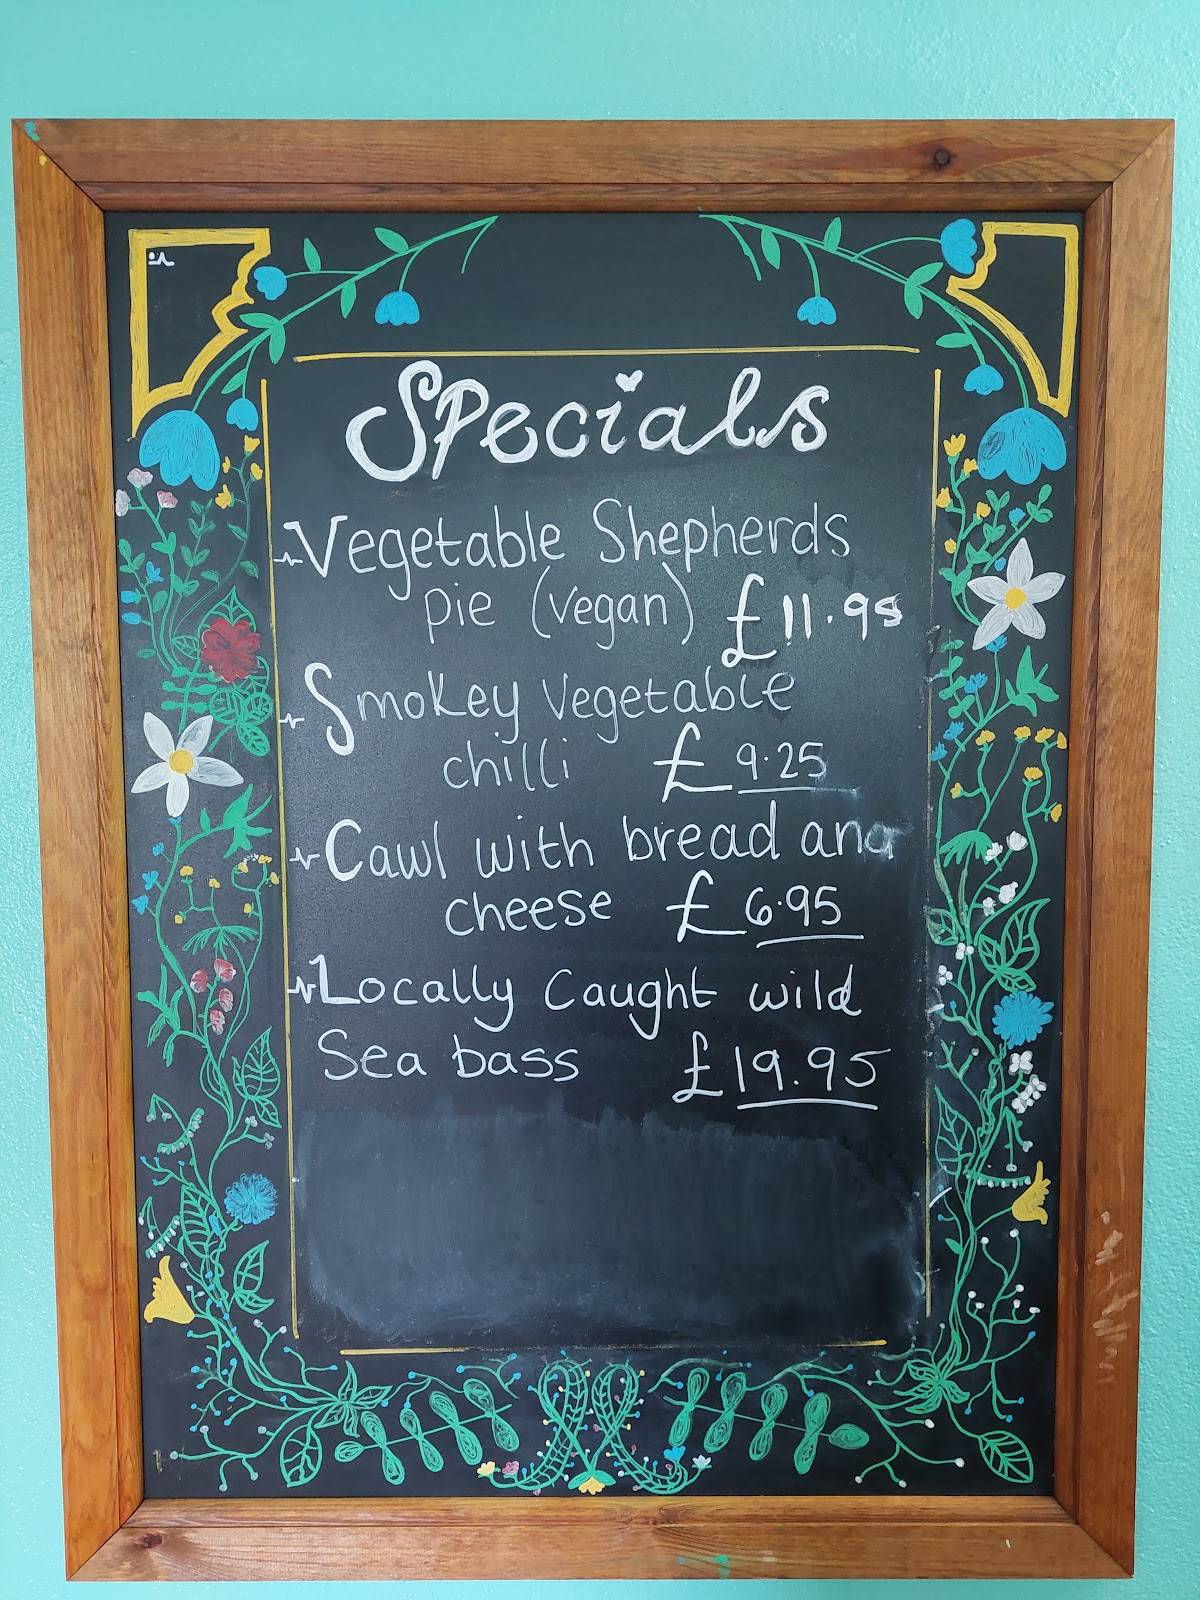 Specials
Vegetable Shepherds
pie (vegan) £11.95
Smokey Vegetable
chilli £9.25
Cawl with bread and
cheese £6.95
Locally Caught wild
Sea bass £19.95